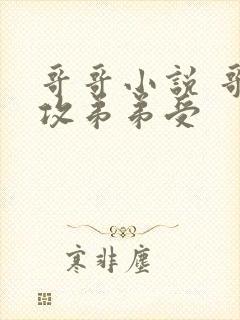 哥哥小说 哥
攻弟弟受
寒非尘